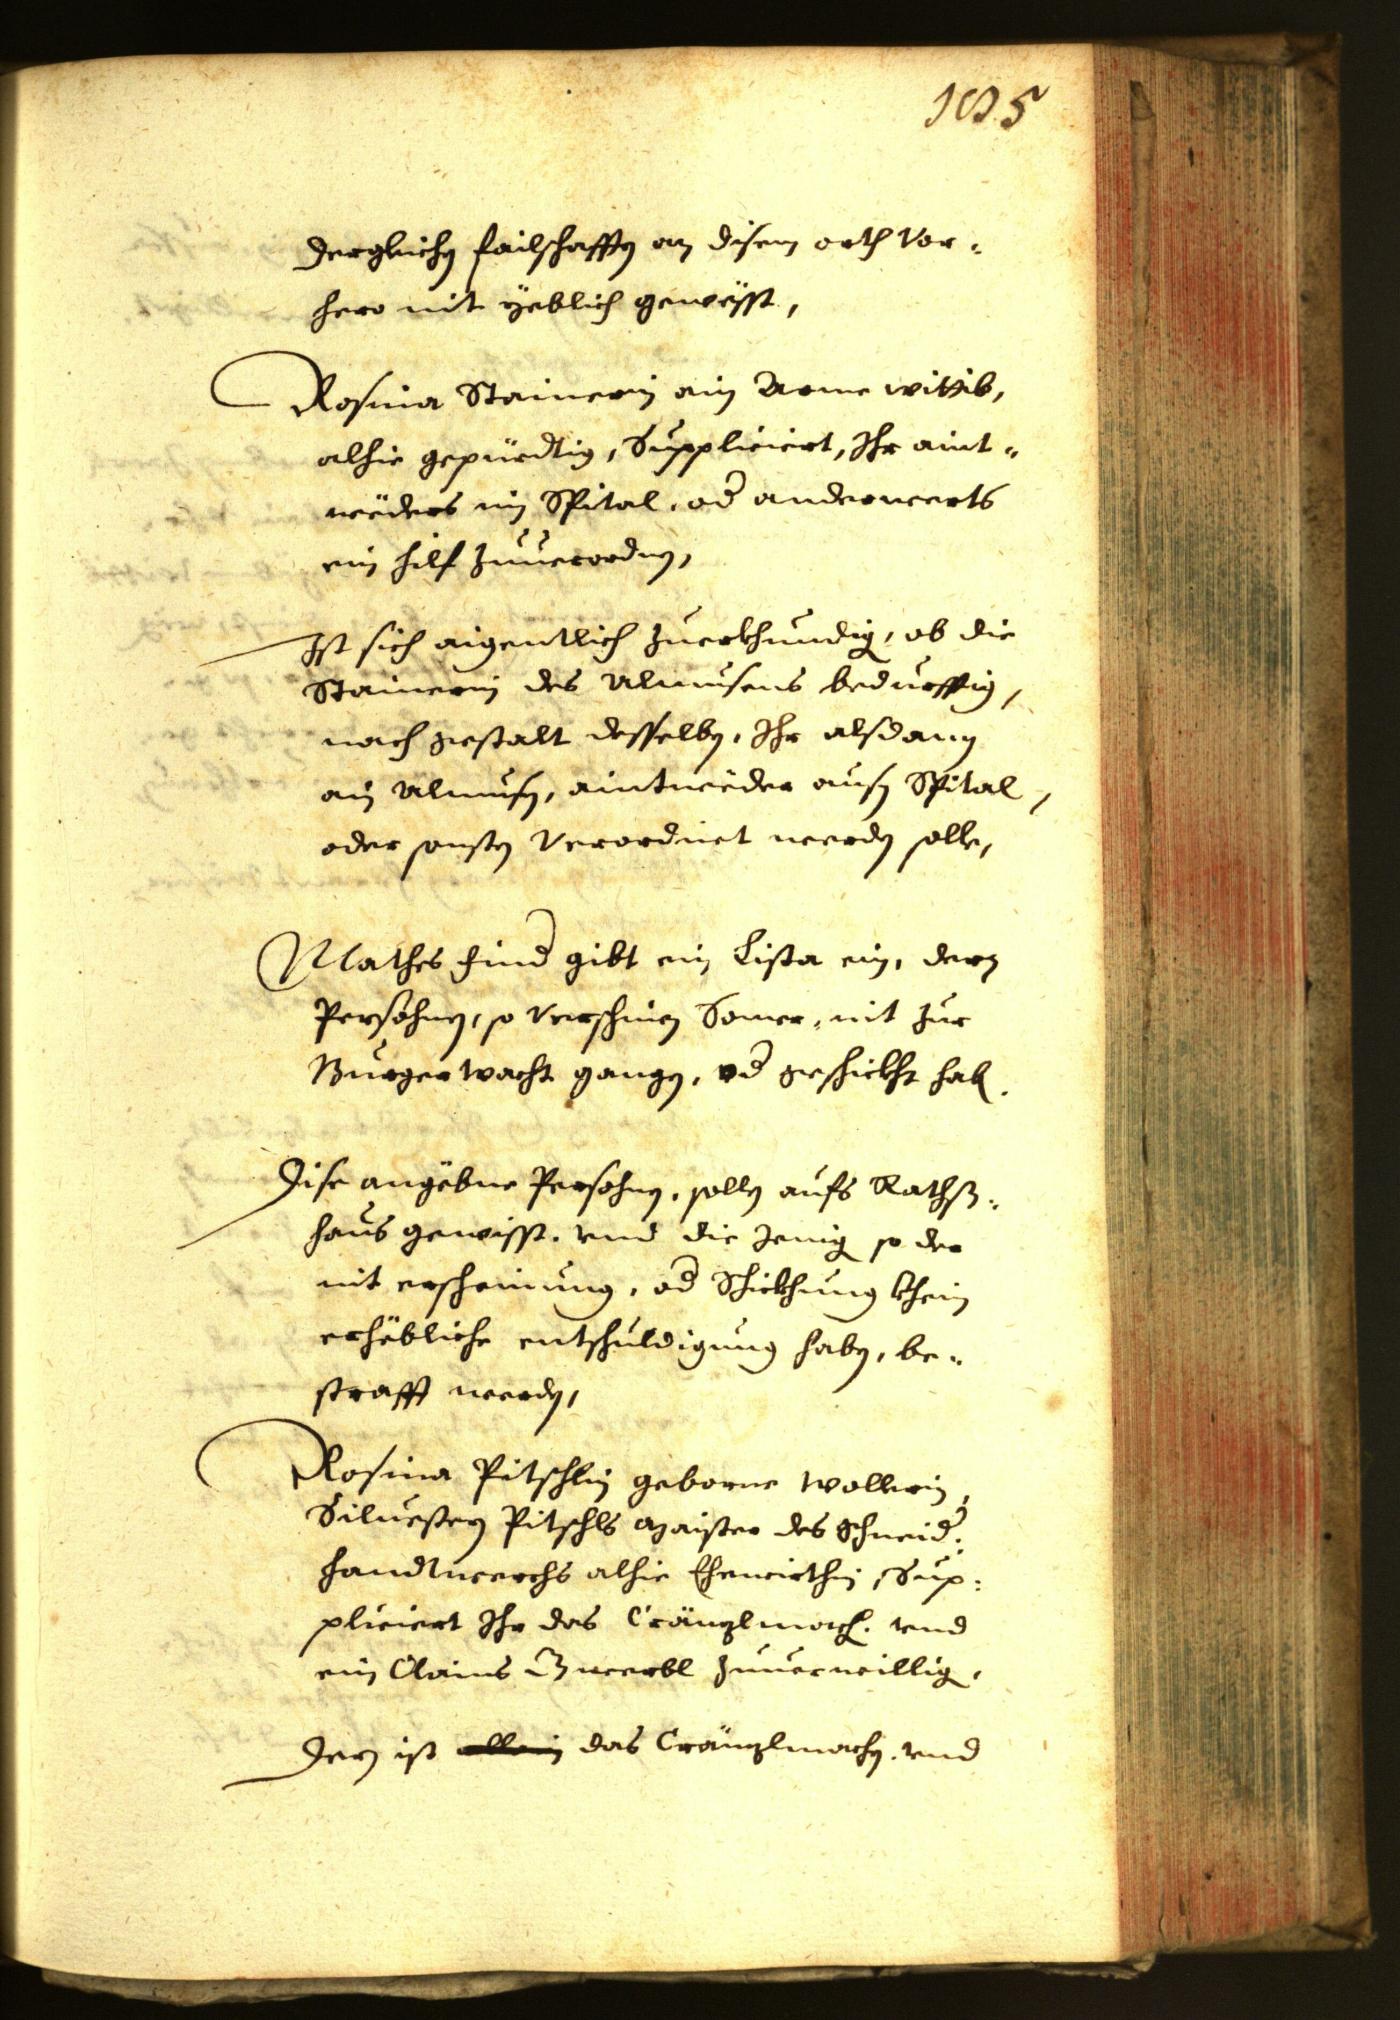 185
dergleichen failschafften an disem orth Vor=
hero nit yeblich gewësst,
Rosina Stainerin ain Arme wittib,
alhie gepürdtig, Suppliciert, Ihr aint=
weders im Spital, od anderwerts
ein hilf zuuerordnen,
Ist sich aigentlich zuerkhundig, ob die
Stainerin des Almusens bedürfftig,
nach gestalt desselben, Ihr alsdann
ain Almusen, aintweder ausm Spital,
oder sonsten Verordnet werden solle,
Mathes Find gibt ein Lista ein, dern
Persohnen, so Verschinen Somer, nit zur
Burger wacht gangen, od geschickht hab.
Dise angëbne Persohnen, sollen aufs Rathß=
haus gewisst, vnd die Jenig so der
nit erscheinung, od Schickhung khein
erhëbliche entschuldigung haben, be=
strafft werden,
Rosina Pitschlin geborne Wollerin,
Siluesten Pitschls Maister des Schneid=
handtwerchs alhie Ehewirthin, Sup=
pliciert Ihr das Cränzlmach. vnd
ein Clains Gwerbl zuuerwillig,
Dern ist allein das Cränzlmachen, vnd